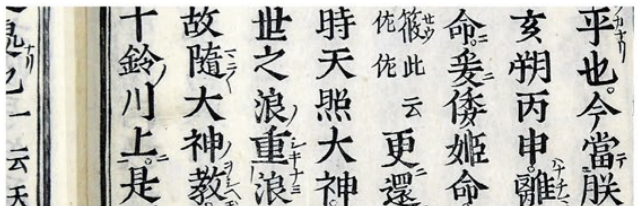 平也。今當朕
亥朔丙申離
命。爰倭姬命
筱此云佐佐更還
時天照大神。
世之浪重浪
故隨大神教
十鈴川上。是
一云天